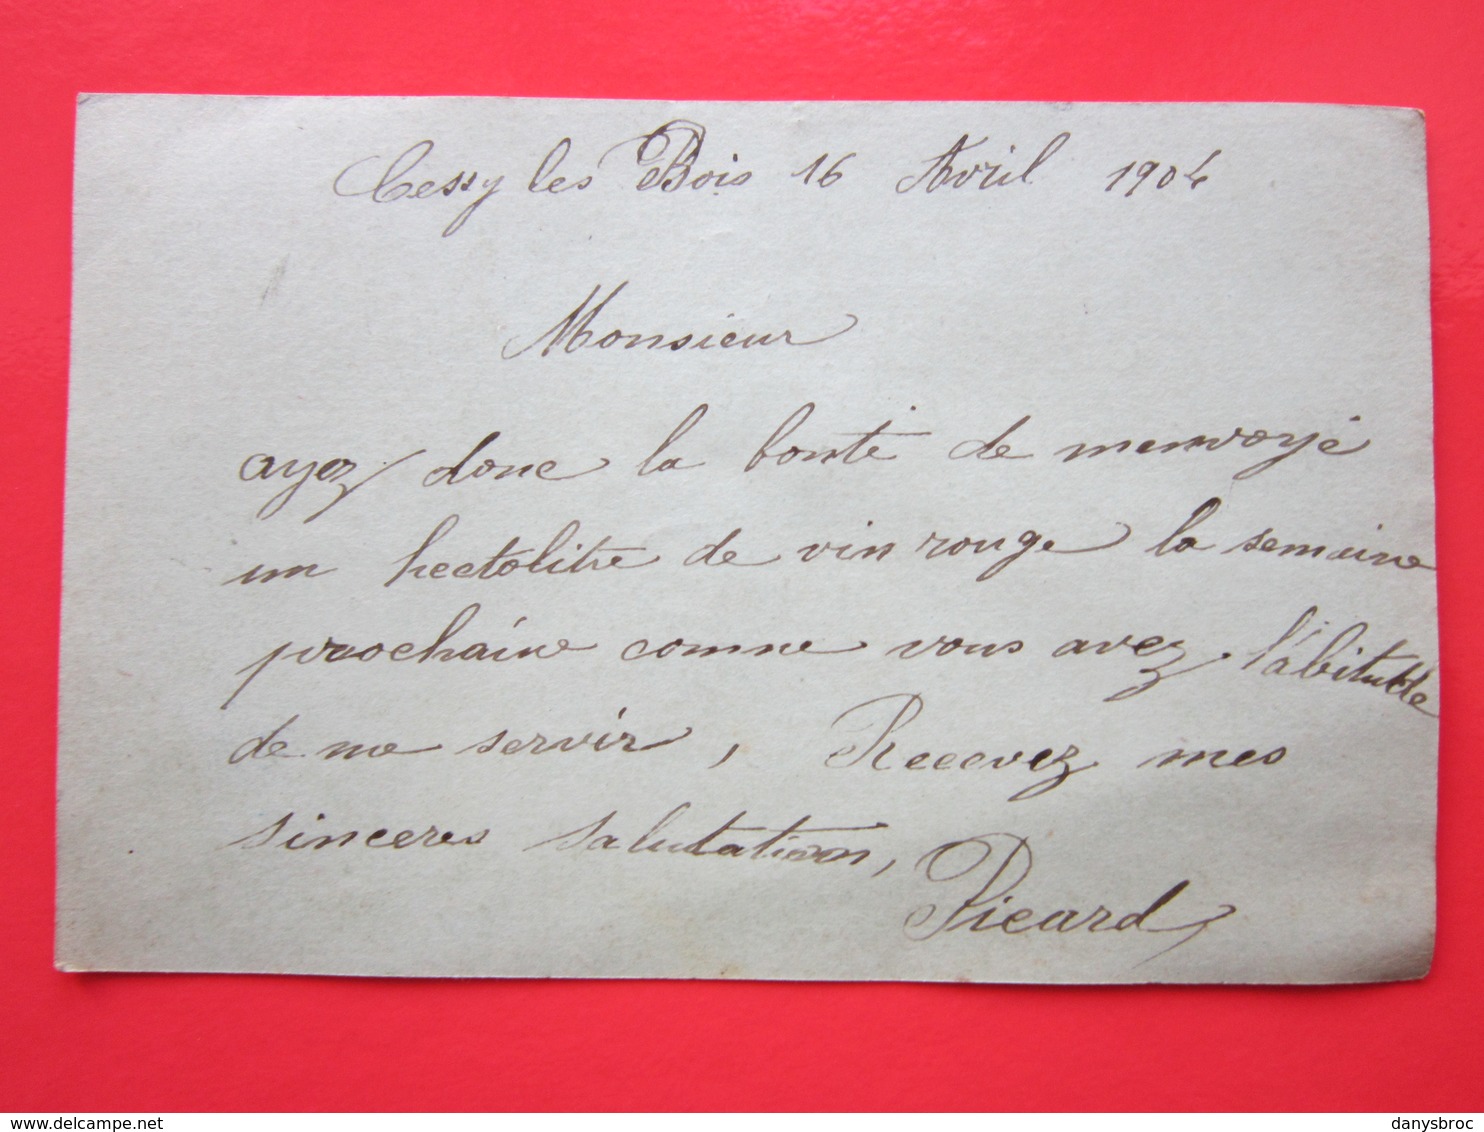 Cessy les Bois 16 Avril 1904
Monsieur
ayez donc la bonté de menvoyé
un hectolitre de vin rouge la semaine
prochaine comme vous avez l'abitude
de me servir, Recevez mes
sinceres salutation,
Picard
delcampe.net
danysbroc